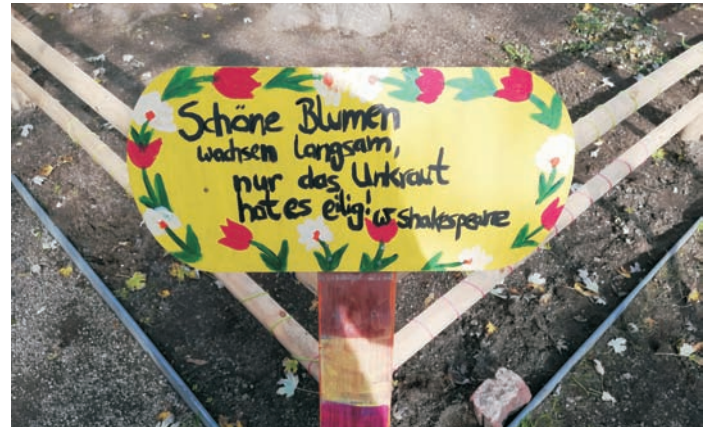 Schöne Blumen
wachsen langsam,
nur das Unkraut
hat es eilig! W Shakespeare